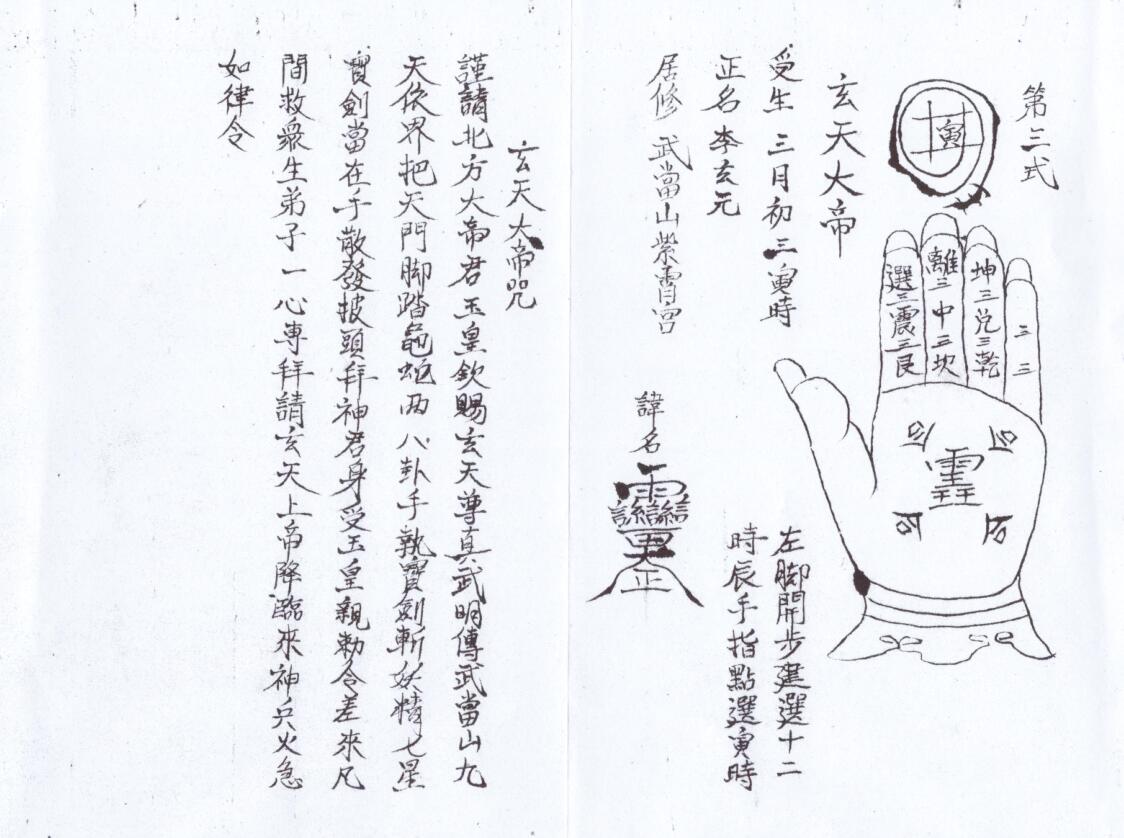 第三式
寅
玄天大帝
受生 三月初三寅時
正名 李玄元
居修 武當山紫霄宮
諱名
正
左腳開步建選十二
時辰手指點選寅時
坤三兌三乾
離三中三坎
選三震三艮
三三
玄天大帝咒
謹請北方大帝君玉皇欽賜玄天尊真武明傳武當山九
天依界把天門腳踏龜蛇両八卦手執寶剑斬妖精七星
寶劍當在手散發披頭拜神君身受玉皇親勅令差來凡
間救衆生弟子一心專拜請玄天上帝降臨來神兵火急
如律令